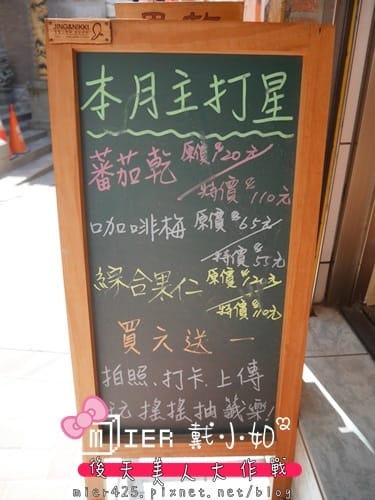 JINGANIKKI
本月主打星
蕃茄乾 原價$120元
特價$110元
咖啡梅 原價$65元
特價$55元
綜合果仁 原價$120元
特價$110元
買六送一
拍照、打卡、上傳
玩搖搖抽籤樂!
mIER 戴小如
後天美人大作戰
mier425.pixnet.net/blog